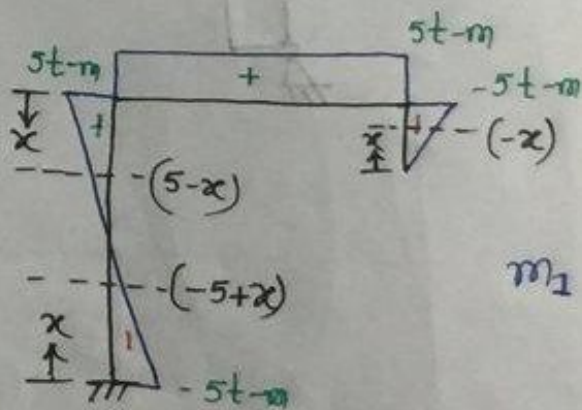 5t-m
5t-m
+
-5t-m
x
+
x
(-x)
(5-x)
m1
(-5+x)
x
-5t-m